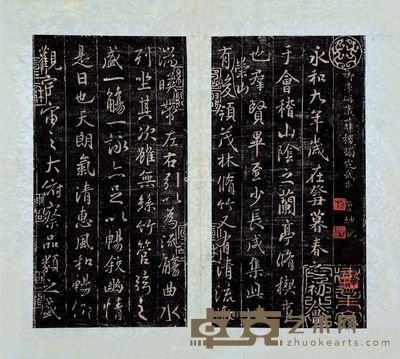 永和九年歲在癸丑暮春
于會稽山陰之蘭亭脩禊事
也羣賢畢至少長咸集此
有崇山峻領茂林脩竹又有清流激
湍暎帶左右引以為流觴曲水
列坐其次雖無絲竹管弦之
盛一觴一詠亦足以暢敘幽情
是日也天朗氣清惠風和暢仰
觀宇宙之大俯察品類之盛
卓克艺术网
www.zhuokearts.com